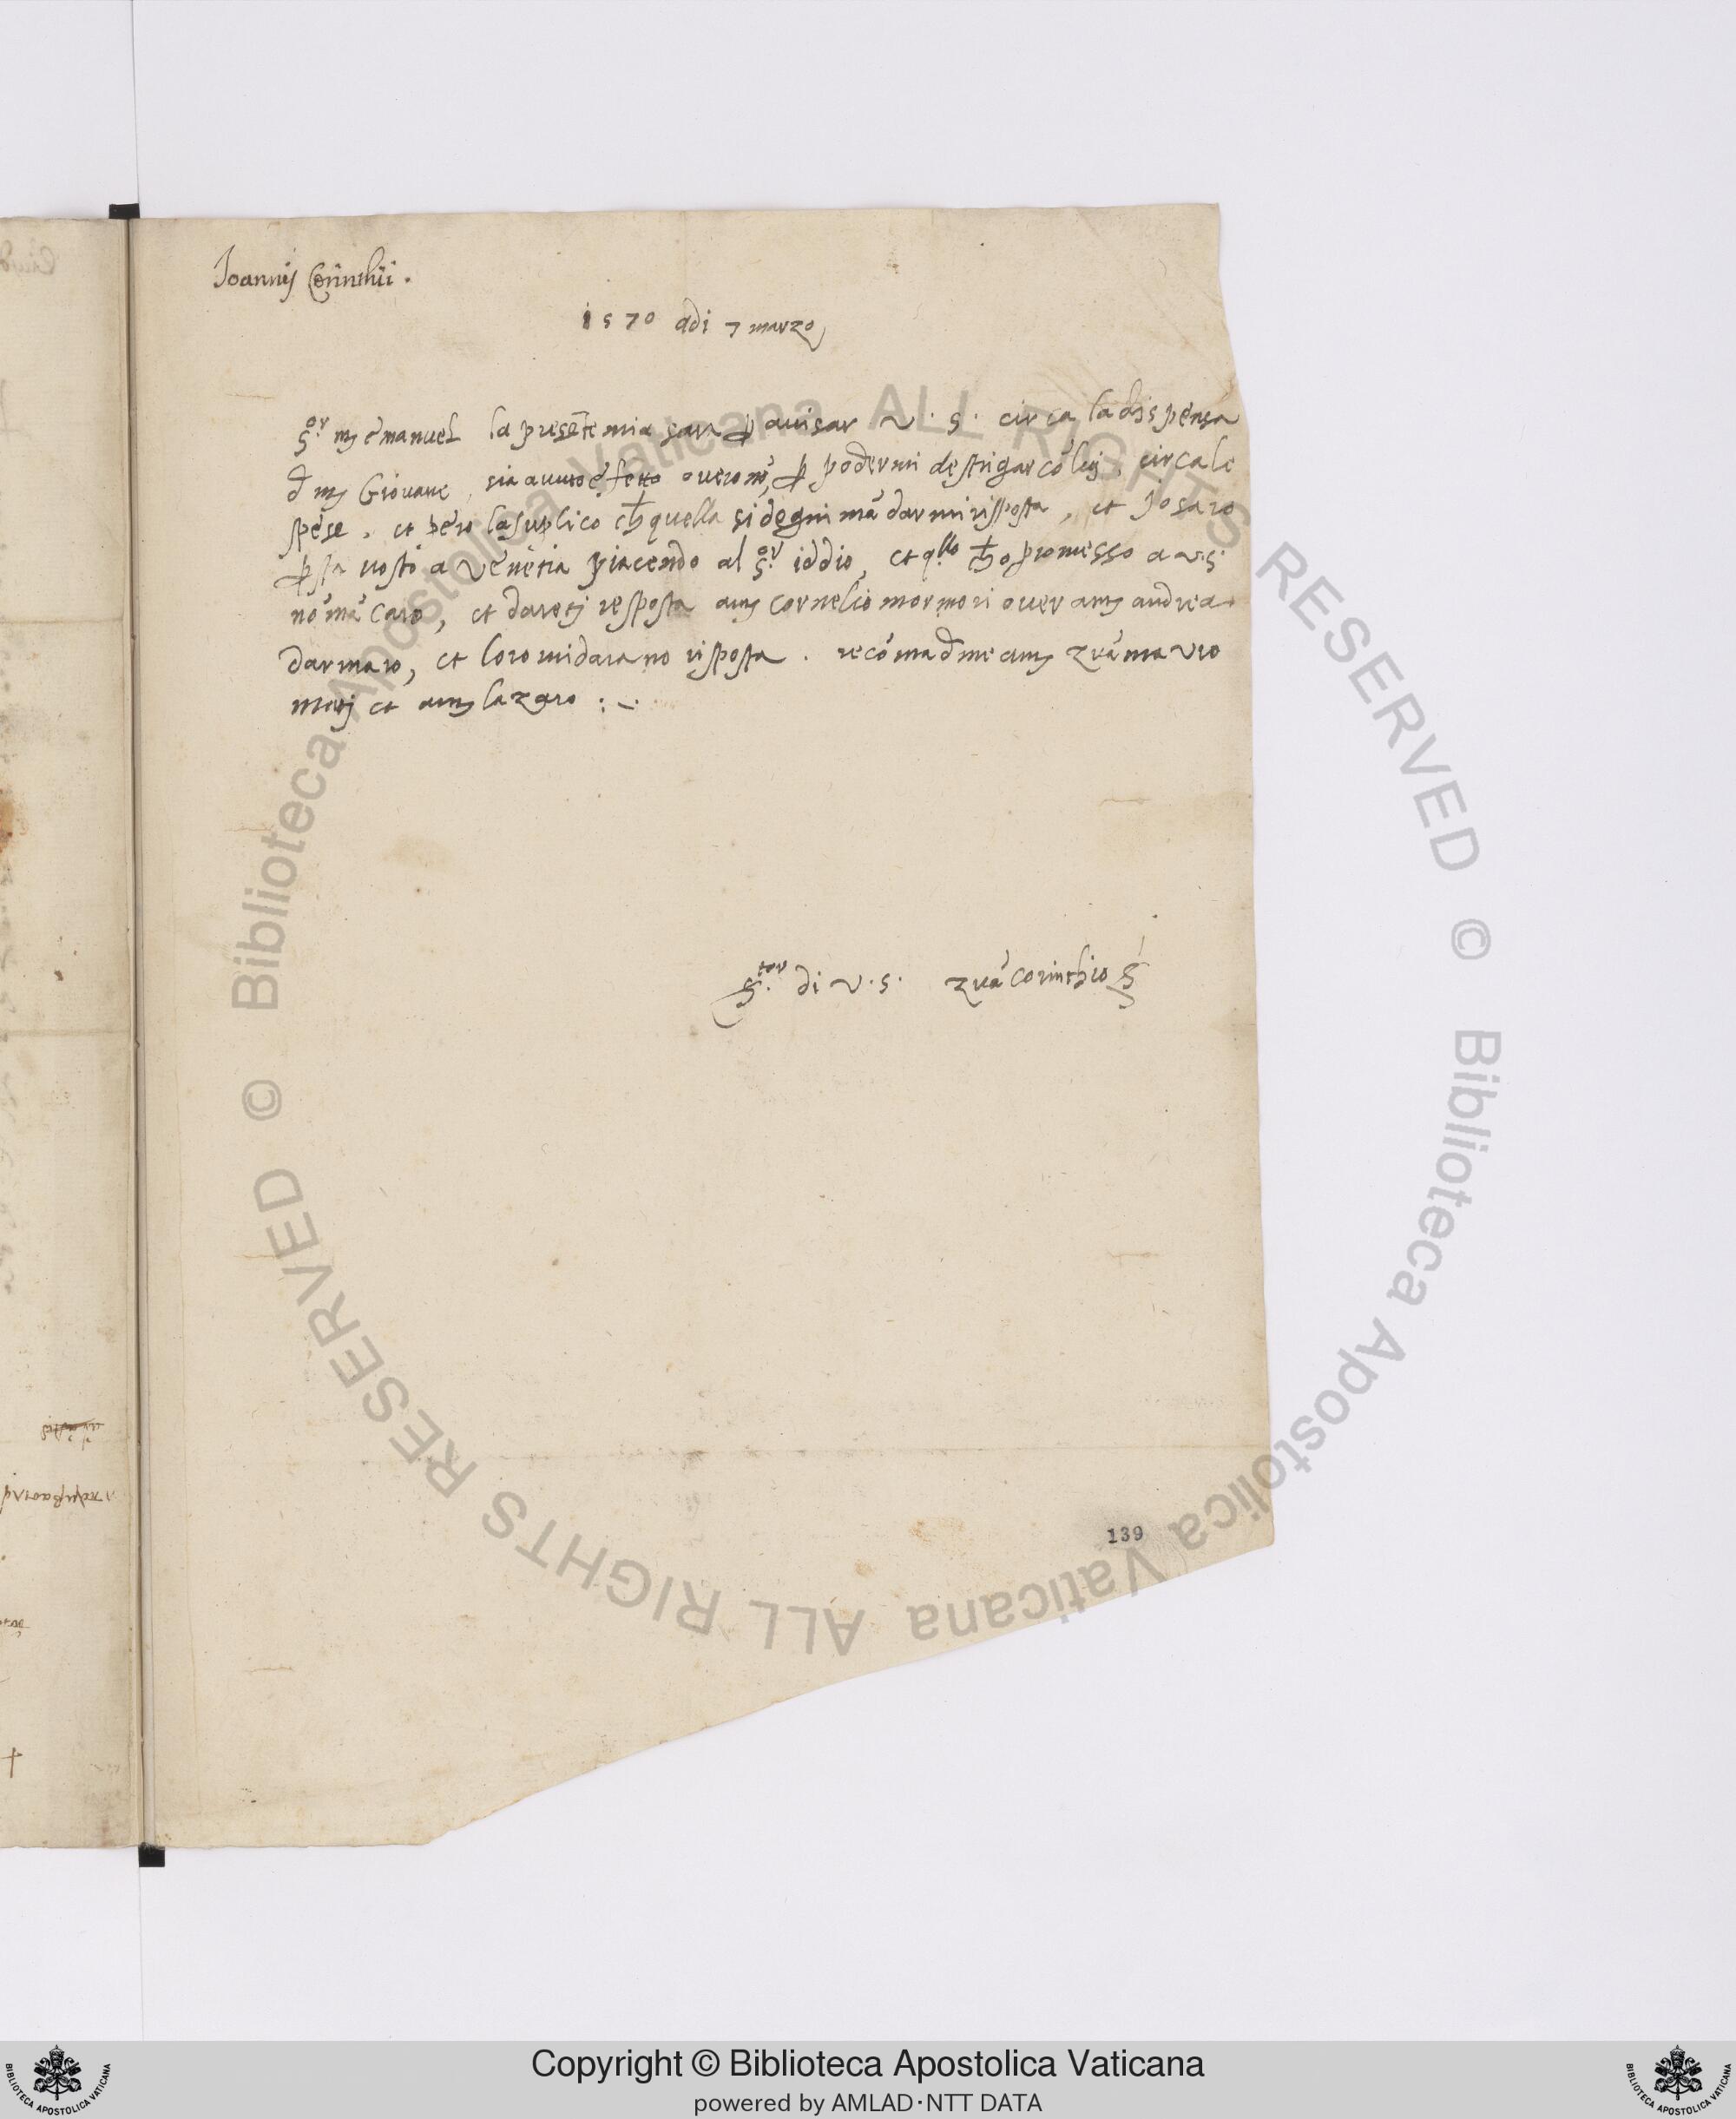 Joannis Corinthii .
1570 adi 7 marzo
S.or ms emanuel la presēte mia sara ꝑ avisar v. s. circa la dispensa
đ ms Giovane, sia avuto effetto overo nō, ꝑ podermi destrigar cō lui, circa le
spese, et pero la suplico cħ quella si degni mādarmi risposta, et io saro
ꝑ sta a venetia piacendo al S.or iddio, et q.llo cħ o promesso a v. s.
nō mācaro, et dareti resposta a ms cornelio mormori over a ms andrea
darmaro, et loro mi darano risposta . recōmađme a ms zuā mavro
mati et a ms lazaro :-
S.tor di v. s. zuā corinthio
139
Copyright © Biblioteca Apostolica Vaticana
powered by AMLAD·NTT DATA
© Biblioteca Apostolica Vaticana ALL RIGHTS RESERVED
© Biblioteca Apostolica Vaticana ALL RIGHTS RESERVED
BIBLIOTECA APOSTOLICA VATICANA
BIBLIOTECA APOSTOLICA VATICANA